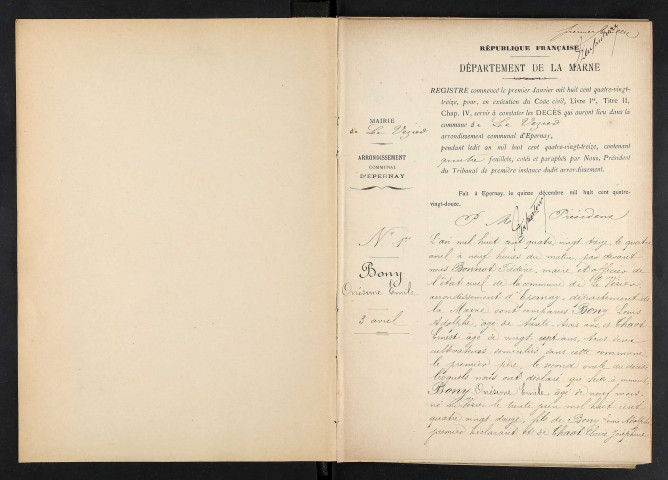 premier
RÉPUBLIQUE FRANÇAISE
DÉPARTEMENT DE LA MARNE
REGISTRE commencé le premier Janvier mil huit cent quatre-vingt-
treize, pour, en exécution du Code civil, Livre Ier, Titre II,
Chap. IV, servir à constater les DÉCÈS qui auront lieu dans la
commune de Le Vézier
arrondissement communal d'Epernay,
pendant ledit an mil huit cent quatre-vingt-treize, contenant
feuillets, cotés et paraphés par Nous, Président
du Tribunal de première instance dudit arrondissement.
Fait à Epernay, le quinze décembre mil huit cent quatre-
vingt-douze.
MAIRIE
de Le Vézier
ARRONDISSEMENT
COMMUNAL
D'EPERNAY
N° 1er
Bony
Onésime Emile
3 avril
L'an mil huit cent quatre vingt treize, le quatre
avril à neuf heures du matin, par devant
nous Bonnot maire et officier de
l'état civil de la commune de Le Vézier
arrondissement d'Epernay, département de
la Marne sont comparus Bony Louis
Adolphe, âgé de trente trois ans et
Ernest âgé de vingt sept ans, tous deux
cultivateurs domiciliés dans cette commune
le premier père, le second oncle du décédé
lesquels nous ont déclaré que hier à
Bony Onésime Emile, âgé de neuf mois
né Le Vézier le trente juin mil huit cent
quatre vingt douze, fils de Bony Louis Adolphe
premier déclarant et de Joséphine